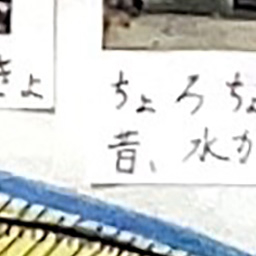 きょ
ちょろちょ
昔、水が